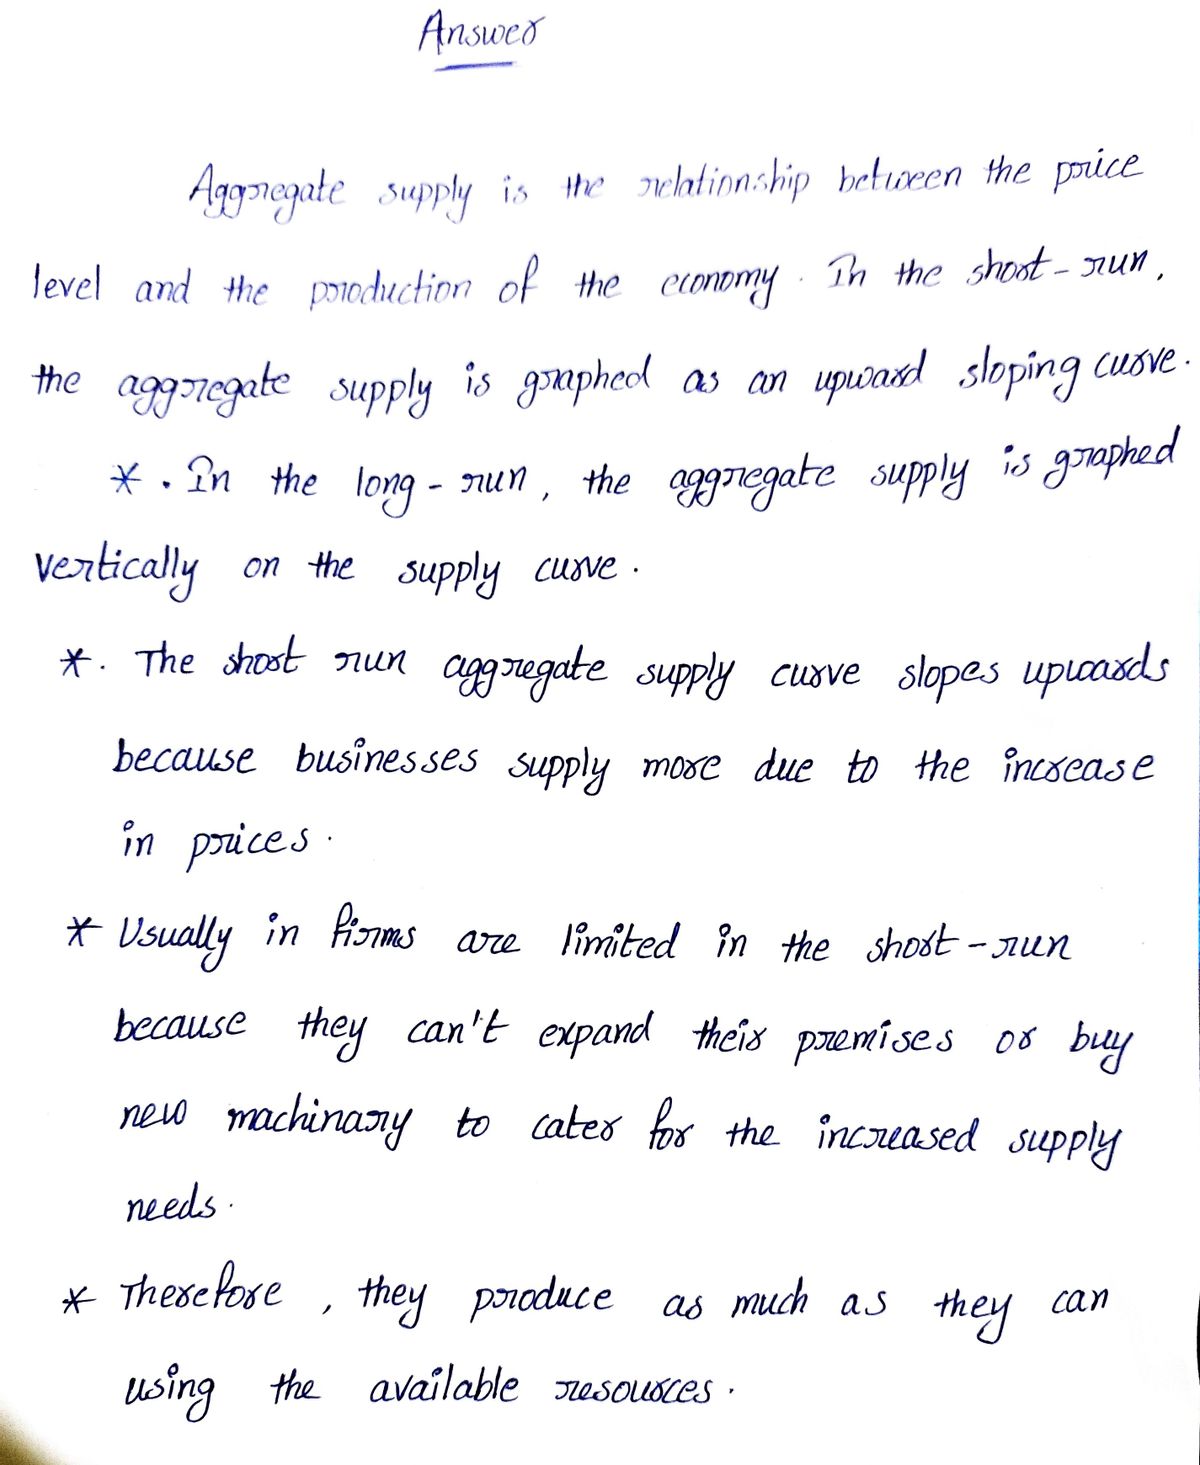 Answer
Aggregate supply is the relationship between the price
level and the production of the economy. In the short-run,
the aggregate supply is graphed as an upward sloping curve.
*. In the long-run, the aggregate supply is graphed
vertically on the supply curve.
*. The short run aggregate supply curve slopes upwards
because businesses supply more due to the increase
in prices.
* Usually in firms are limited in the short-run
because they can't expand their premises or buy
new machinary to cater for the increased supply
needs.
* Therefore, they produce as much as they can
using the available resources.